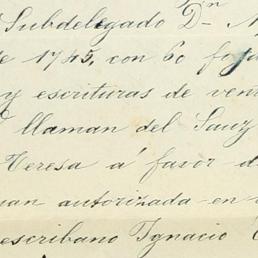 Subdelegado Dn
de 1745, con 60 foja
y escrituras de ven
llaman del Sauz
Teresa a' favor d
autorizada en
escribano Ygnacio